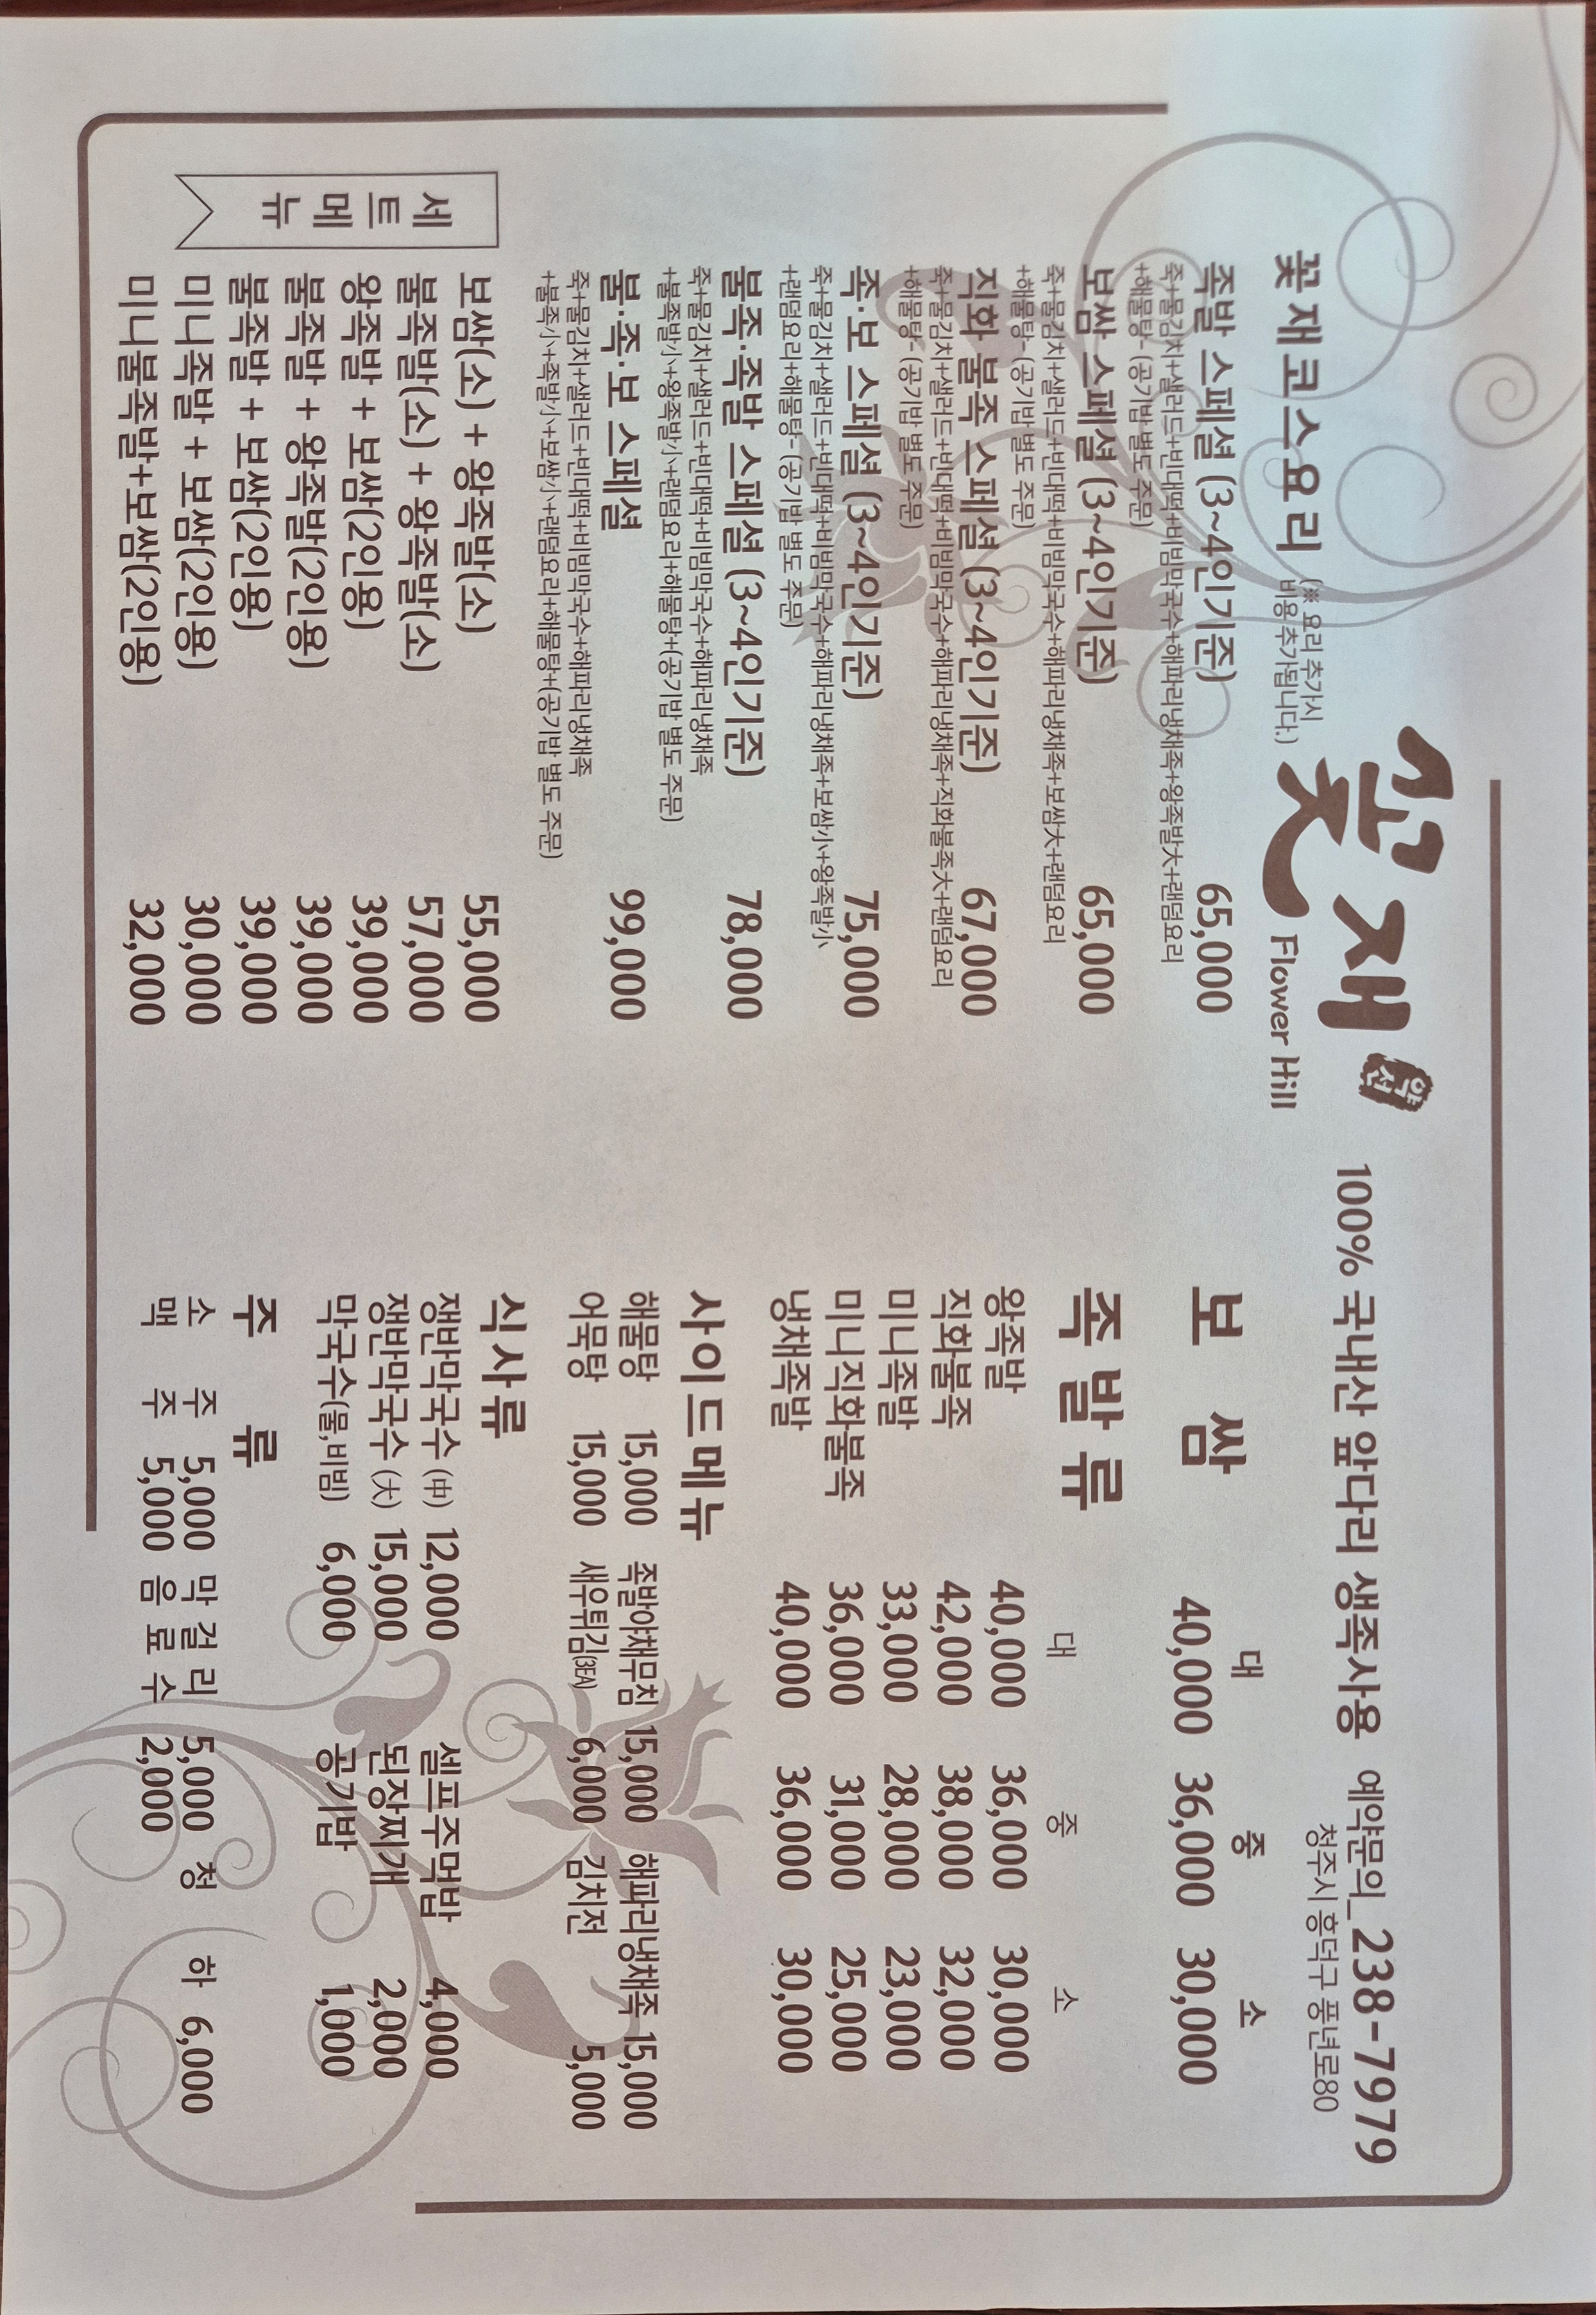 꽃재 약선
Flower Hill
100% 국내산 앞다리 생족사용 예약문의_238-7979
청주시 흥덕구 풍년로80
꽃재코스요리 (※ 요리 추가시
비용 추가됩니다.)
족발 스페셜 (3~4인기준) 65,000
죽+물김치+샐러드+빈대떡+비빔막국수+해파리냉채족+왕족발大+랜덤요리
+해물탕- (공기밥 별도 주문)
보쌈 스페셜 (3~4인기준) 65,000
죽+물김치+샐러드+빈대떡+비빔막국수+해파리냉채족+보쌈大+랜덤요리
+해물탕- (공기밥 별도 주문)
직화 불족 스페셜 (3~4인기준) 67,000
죽+물김치+샐러드+빈대떡+비빔막국수+해파리냉채족+직화불족大+랜덤요리
+해물탕- (공기밥 별도 주문)
족·보 스페셜 (3~4인기준) 75,000
죽+물김치+샐러드+빈대떡+비빔막국수+해파리냉채족+보쌈小+왕족발小
+랜덤요리+해물탕- (공기밥 별도 주문)
불족·족발 스페셜 (3~4인기준) 78,000
죽+물김치+샐러드+빈대떡+비빔막국수+해파리냉채족
+불족발小+왕족발小+랜덤요리+해물탕+(공기밥 별도 주문)
불·족·보 스페셜 99,000
죽+물김치+샐러드+빈대떡+비빔막국수+해파리냉채족
+불족小+족발小+보쌈小+랜덤요리+해물탕+(공기밥 별도 주문)
세트메뉴
보쌈(소) + 왕족발(소) 55,000
불족발(소) + 왕족발(소) 57,000
왕족발 + 보쌈(2인용) 39,000
불족발 + 왕족발(2인용) 39,000
불족발 + 보쌈(2인용) 39,000
미니족발 + 보쌈(2인용) 30,000
미니불족발+보쌈(2인용) 32,000
대 중 소
보 쌈 40,000 36,000 30,000
족발류
대 중 소
왕족발 40,000 36,000 30,000
직화불족 42,000 38,000 32,000
미니족발 33,000 28,000 23,000
미니직화불족 36,000 31,000 25,000
냉채족발 40,000 36,000 30,000
사이드메뉴
해물탕 15,000 족발야채무침 15,000 해파리냉채족 15,000
어묵탕 15,000 새우튀김(3EA) 6,000 김치전 5,000
식사류
쟁반막국수 (中) 12,000 셀프주먹밥 4,000
쟁반막국수 (大) 15,000 된장찌개 2,000
막국수(물,비빔) 6,000 공기밥 1,000
주 류
소 주 5,000 막 걸 리 5,000 청 하 6,000
맥 주 5,000 음 료 수 2,000